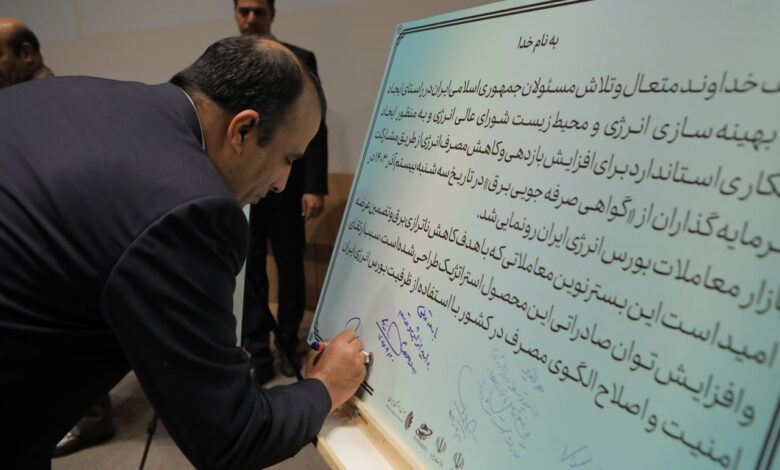 به نام خدا
خداوند متعال و تلاش مسئولان جمهوری اسلامی ایران در راستای ایجاد
بهینه سازی انرژی و محیط زیست شورای عالی انرژی و به منظور ایجاد
کاری استاندارد برای افزایش بازدهی و کاهش مصرف انرژی از طریق مشارکت
سرمایه گذاران از «گواهی صرفه جویی برق» در تاریخ سه شنبه بیستم آذر ۱۴۰۳ در
ازار معاملات بورس انرژی ایران رونمایی شد.
امید است این بستر نوین معاملاتی که با هدف کاهش ناترازی برق و تضمین عرضه
و افزایش توان صادراتی این محصول استراتژیک طراحی شده است، سبب ارتقای
امنیت و اصلاح الگوی مصرف در کشور با استفاده از ظرفیت بورس انرژی ایران